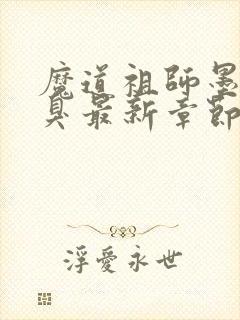 魔道祖師墨
臭最新章節
浮愛永世